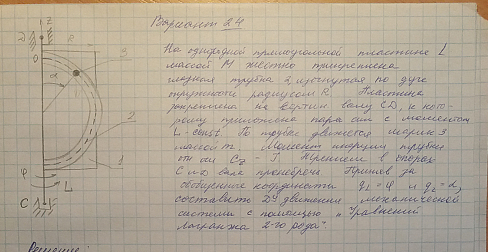 Вариант 24
На однородной прямоугольной пластине 1
массой M жестко прикреплена
трубка 2 изогнутая по дуге
окружности радиусом R. Пластина
закреплена на вертик. валу CD, к кото-
рому приложена пара сил с моментом
L - const. По трубке движется шарик 3
массой m. Момент инерции трубки
от оси Cz - J. Трением в опорах
C и D вала пренебречь. Приняв за
обобщенные координаты q₁ = φ и q₂ = α,
составить ДУ движения механической
системы с помощью "Уравнений
Лагранжа 2-го рода".
z
D
R
3
O
α
2
φ
1
L
C
Решение: